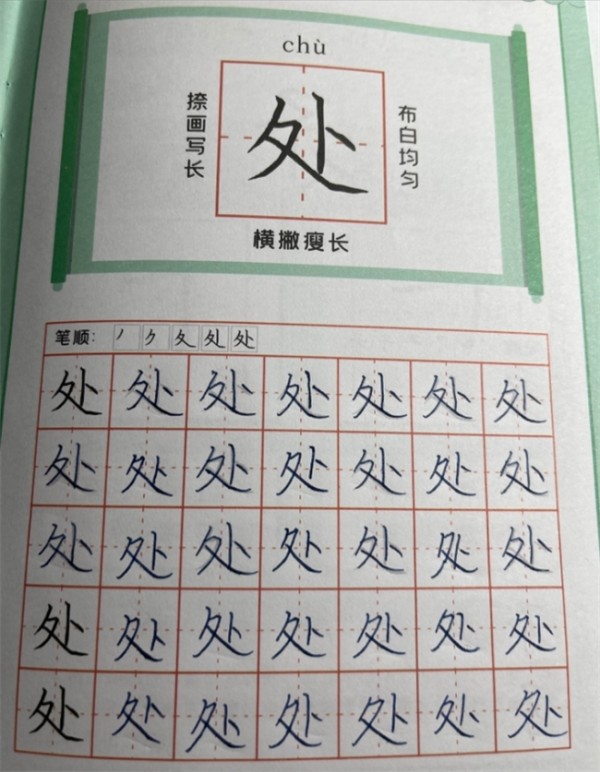 chù
捺画写长
处
布白均匀
横撇瘦长
笔顺: 丿 ク 夂 处 处
处 处 处 处 处 处 处
处 处 处 处 处 处 处
处 处 处 处 处 处 处
处 处 处 处 处 处 处
处 处 处 处 处 处 处